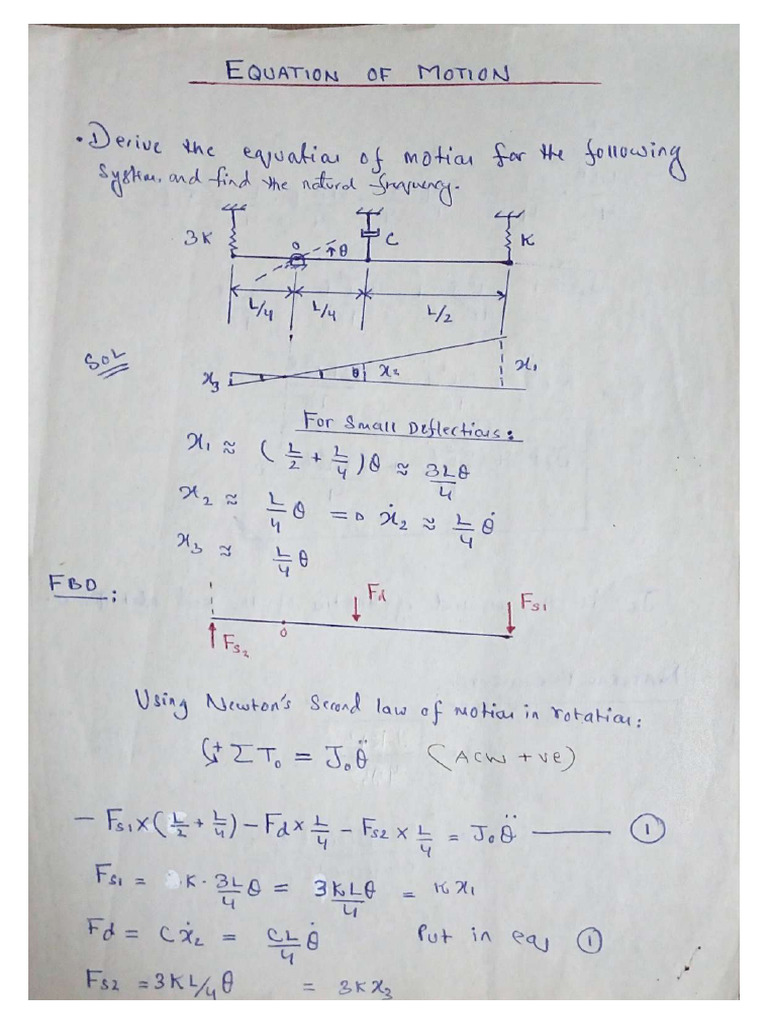 EQUATION OF MOTION
• Derive the equation of motion for the following
System. and find the natural frequency.
3K O θ C K
L/4 L/4 L/2
SOL
x₃ θ x₂ x₁
For Small Deflections:
x₁ ≈ (L/2 + L/4)θ ≈ 3Lθ/4
x₂ ≈ L/4 θ => ẋ₂ ≈ L/4 θ̇
x₃ ≈ L/4 θ
FBD:
Fs₂ O Fd Fs1
Using Newton's Second law of motion in rotation:
↺+ ΣT₀ = J₀θ̈ (ACW +ve)
− Fs1×(L/2 + L/4) − Fd × L/4 − Fs2 × L/4 = J₀θ̈ —— ①
Fs1 = K · 3L/4 θ = 3KLθ/4 = Kx₁
Fd = Cẋ₂ = CL/4 θ̇ Put in eq ①
Fs2 = 3KL/4 θ = 3Kx₃